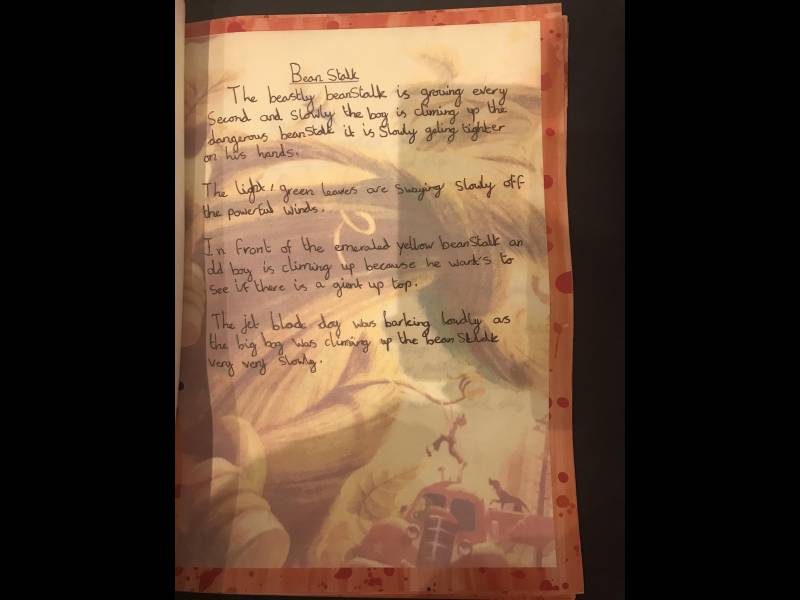 Bean Stalk
The beastly beanStalk is growing every
Second and Slowly the boy is climing up the
dangerous beanStalk it is Slowly geting tighter
on his hands.
The light, green leaves are Swaying Slowly off
the powerful winds.
In front of the emeraled yellow beanStalk an
old boy is climing up because he want's to
see if there is a gient up top.
The jet black dog was barking loudly as
the big boy was climing up the bean Stalk
very very Slowly.